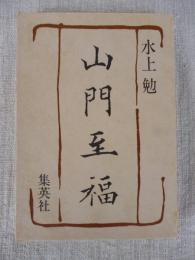 水上 勉
山門至福
集英社